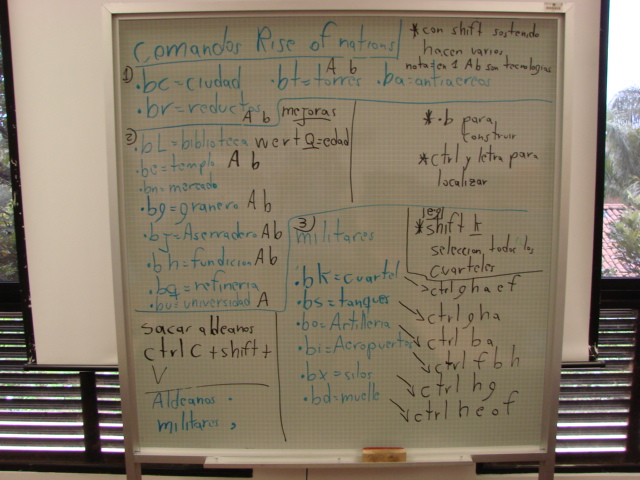 Comandos Rise of nations
* con shift sostenido
hacen varios
nota: en 1 Ab son tecnologias
1)
•bc=ciudad •bt=torres A b •ba=antiaereos
•br=reductos A b
mejoras
2)
•bL=biblioteca w e r t Q=edad
•be=templo A b
•bn=mercado
•bg=granero A b
•bj=Aserradero A b
•bh=fundicion A b
•bq=refineria
•bu=universidad A
* •b para
construir
* ctrl y letra para
localizar
3)
militares
(eg)
*shift k
seleccion todos los
cuarteles
•bk=cuartel
ctrl g h a e f
•bs=tanques
ctrl g h a
•bo=Artilleria
ctrl b a
•bi=Aeropuertos
ctrl f b h
•bx=silos
ctrl h g
•bd=muelle
ctrl h e o f
sacar aldeanos
ctrl C + shift +
V
Aldeanos •
militares ,